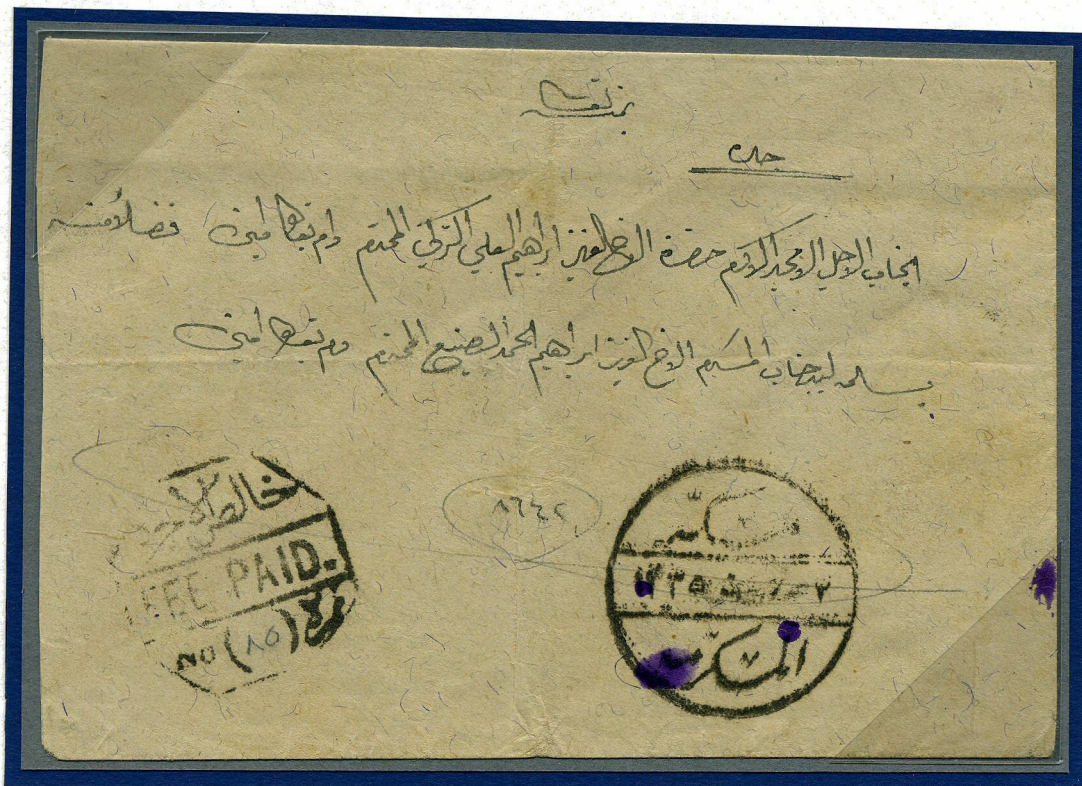 بمنه تعالى
جده
الجناب الاجل الامجد الاكرم حضرة الاخ العزيز ابراهيم العلي التركي المحترم دام بقاه امين
يسلم ليد جناب المكرم الاخ العزيز ابراهيم المحمد الصنيع المحترم دام بقاه امين
خالص الاجره
FEE PAID.
نمرة (٨٥) NO
٨٦٤٢
مكة
١٣٣٥
المكرمة